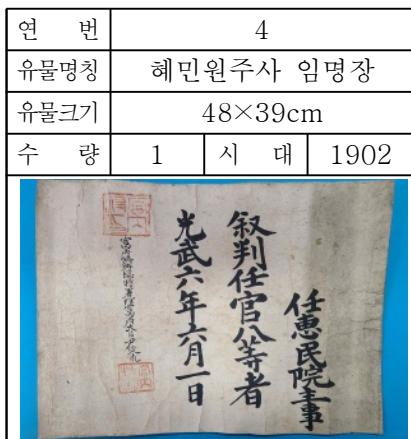 연 번 4
유물명칭 혜민원주사 임명장
유물크기 48×39cm
수 량 1 시 대 1902
任惠民院主事
叙判任官八等者
光武六年六月一日